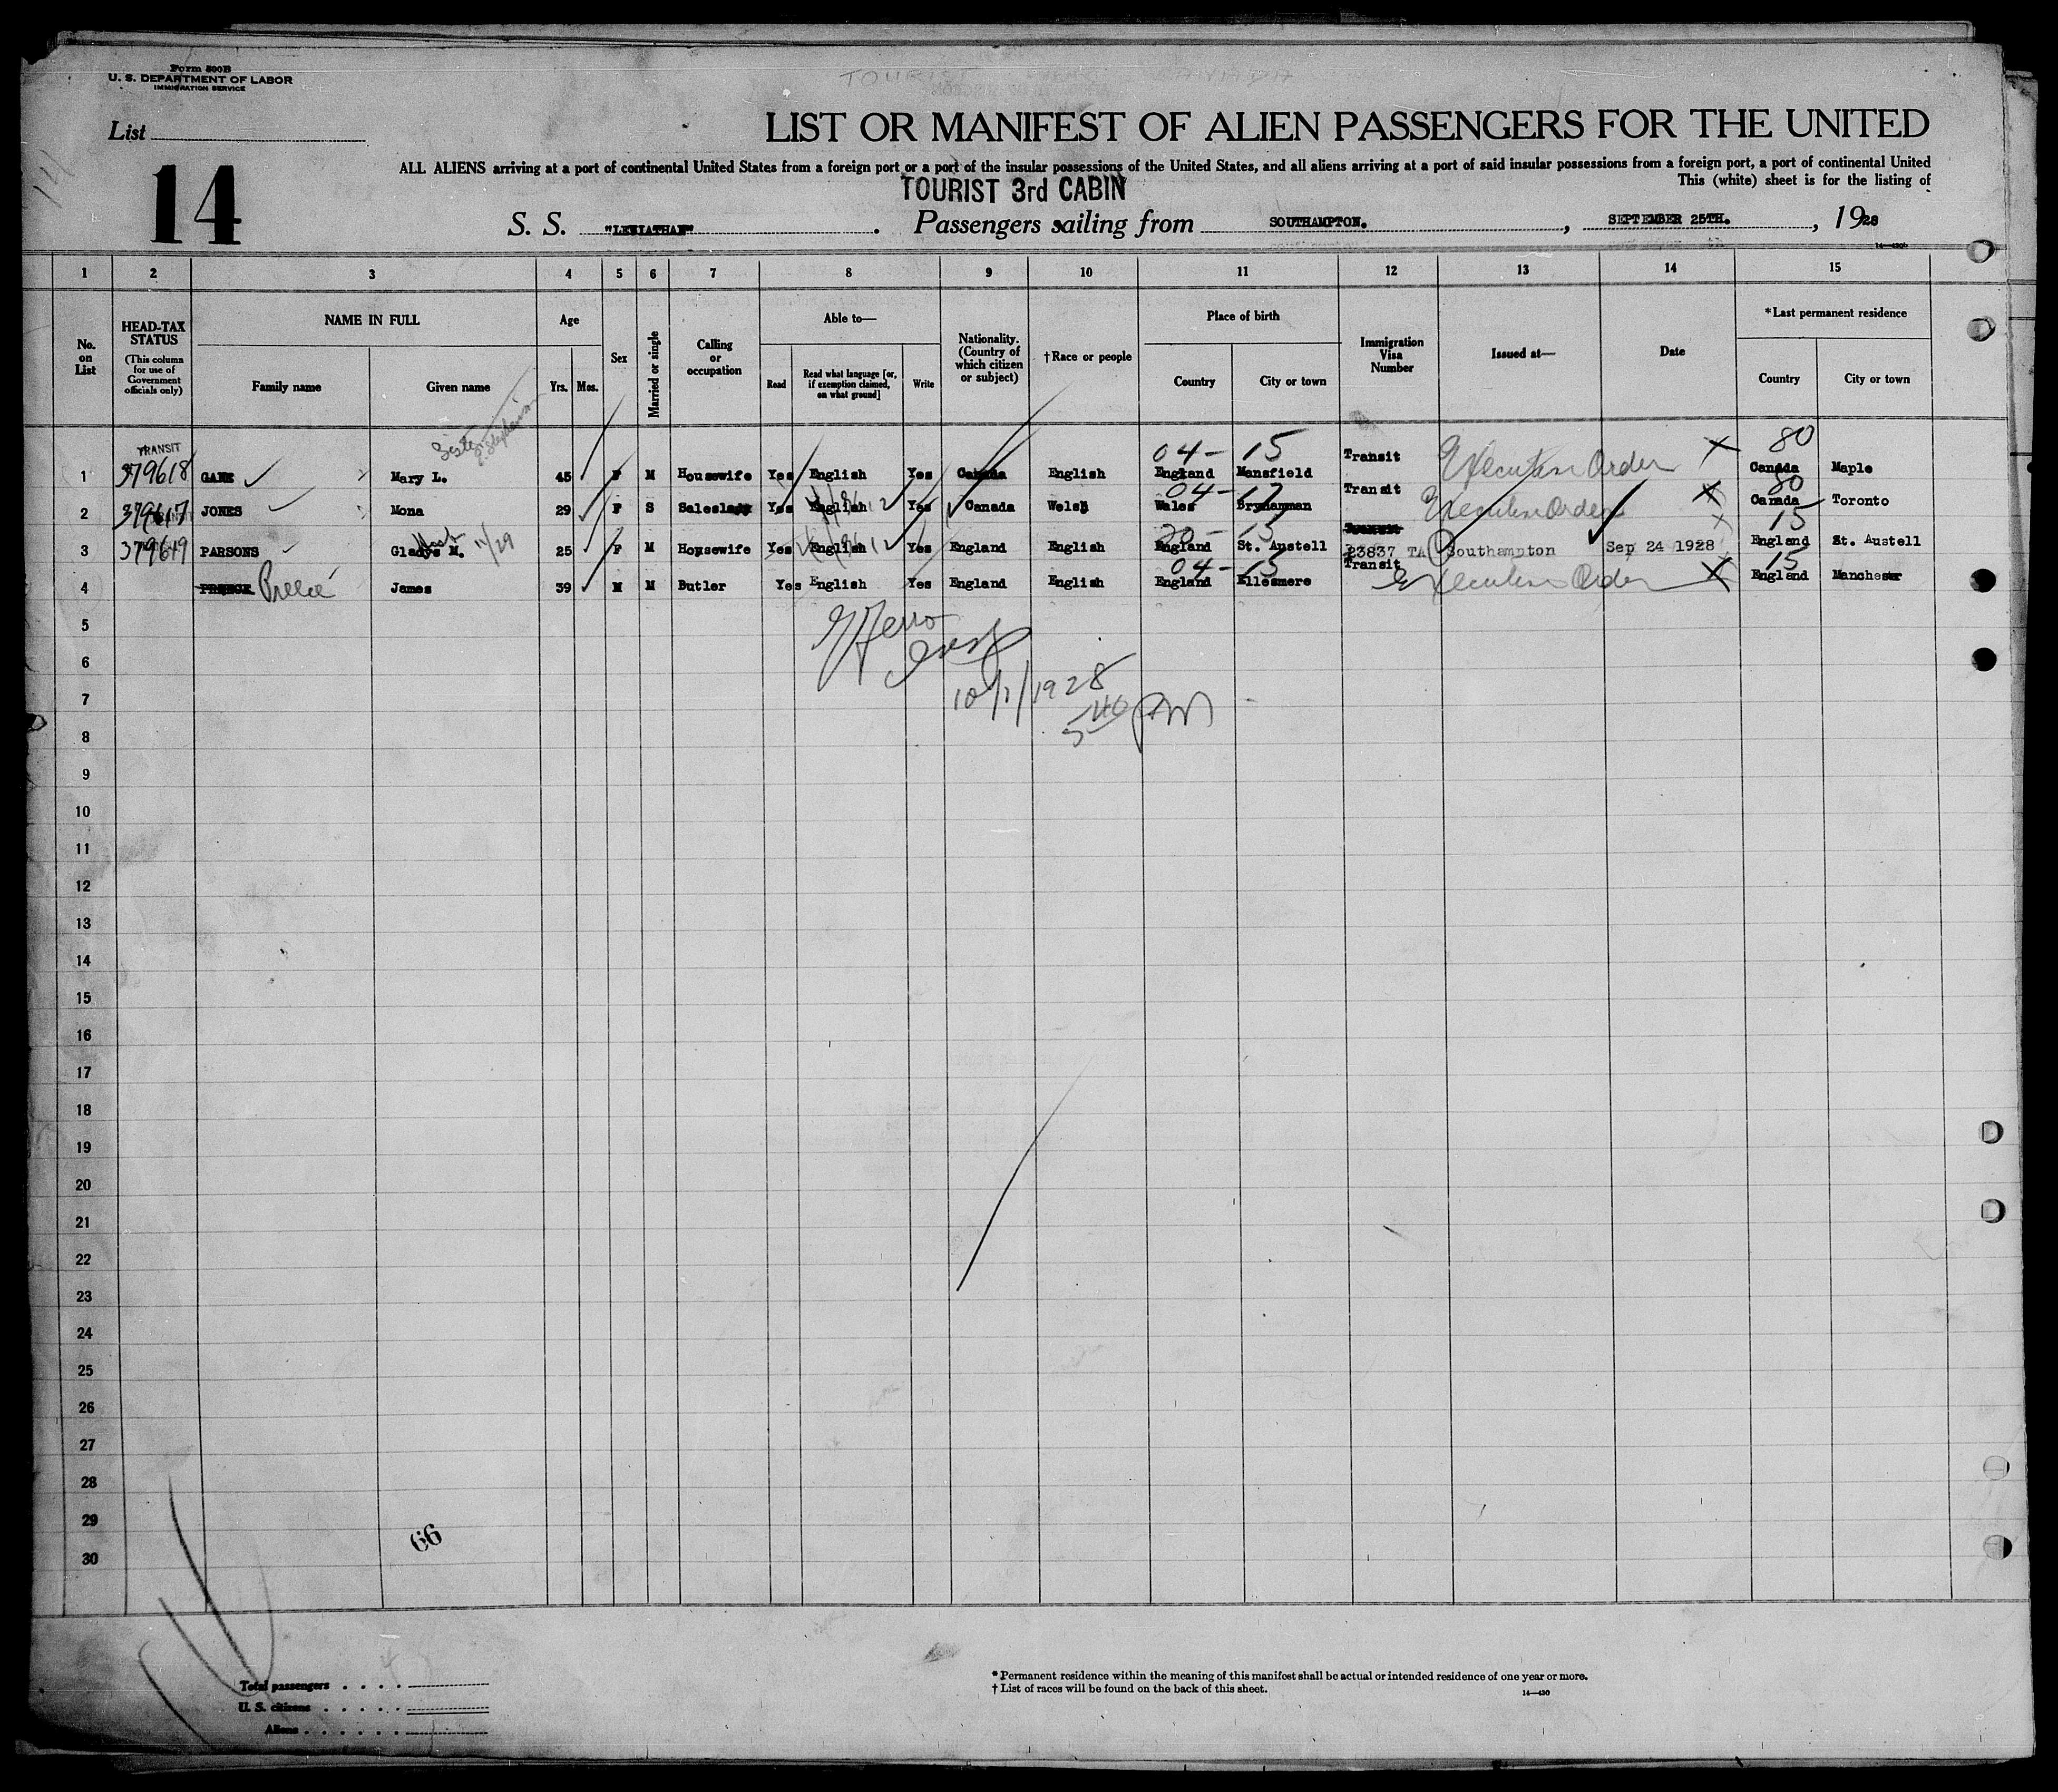 Form 500B
U. S. DEPARTMENT OF LABOR
IMMIGRATION SERVICE
TOURIST CANADA
List
14
LIST OR MANIFEST OF ALIEN PASSENGERS FOR THE UNITED
ALL ALIENS arriving at a port of continental United States from a foreign port or a port of the insular possessions of the United States, and all aliens arriving at a port of said insular possessions from a foreign port, a port of continental United
This (white) sheet is for the listing of
TOURIST 3rd CABIN
S. S. "LEVIATHAN". Passengers sailing from SOUTHAMPTON. , SEPTEMBER 25TH. , 1928
1 2 3 4 5 6 7 8 9 10 11 12 13 14 15
No. on List
HEAD-TAX STATUS (This column for use of Government officials only)
NAME IN FULL
Family name Given name
Age
Yrs. Mos.
Sex
Married or single
Calling or occupation
Able to—
Read Read what language [or, if exemption claimed, on what ground] Write
Nationality. (Country of which citizen or subject)
†Race or people
Place of birth
Country City or town
Immigration Visa Number
Issued at—
Date
*Last permanent residence
Country City or town
TRANSIT 04- 15 80
1 379618 GANE Mary L. 45 F M Housewife Yes English Yes Canada English England Mansfield Transit Executive Order X Canada Maple
04- 17 80
2 379617 JONES Mona 29 F S Yes English Yes Canada Welsh Wales Brynamman Transit Executive Order X Canada Toronto
11/29 20- 15 15
3 379619 PARSONS Gladys M. 25 F M Housewife Yes English Yes England English England St. Austell 23837 TA Southampton Sep 24 1928 England St. Austell
04- 15 15
4 James 39 M M Butler Yes English Yes England English England Ellesmere Transit Executive Order X England Manchester
5
6
10/1/1928
7
5 40 PM
8
9
10
11
12
13
14
15
16
17
18
19
20
21
22
23
24
25
26
27
28
29
66
30
Total passengers
U. S. citizens
Aliens
* Permanent residence within the meaning of this manifest shall be actual or intended residence of one year or more.
† List of races will be found on the back of this sheet.
14—430